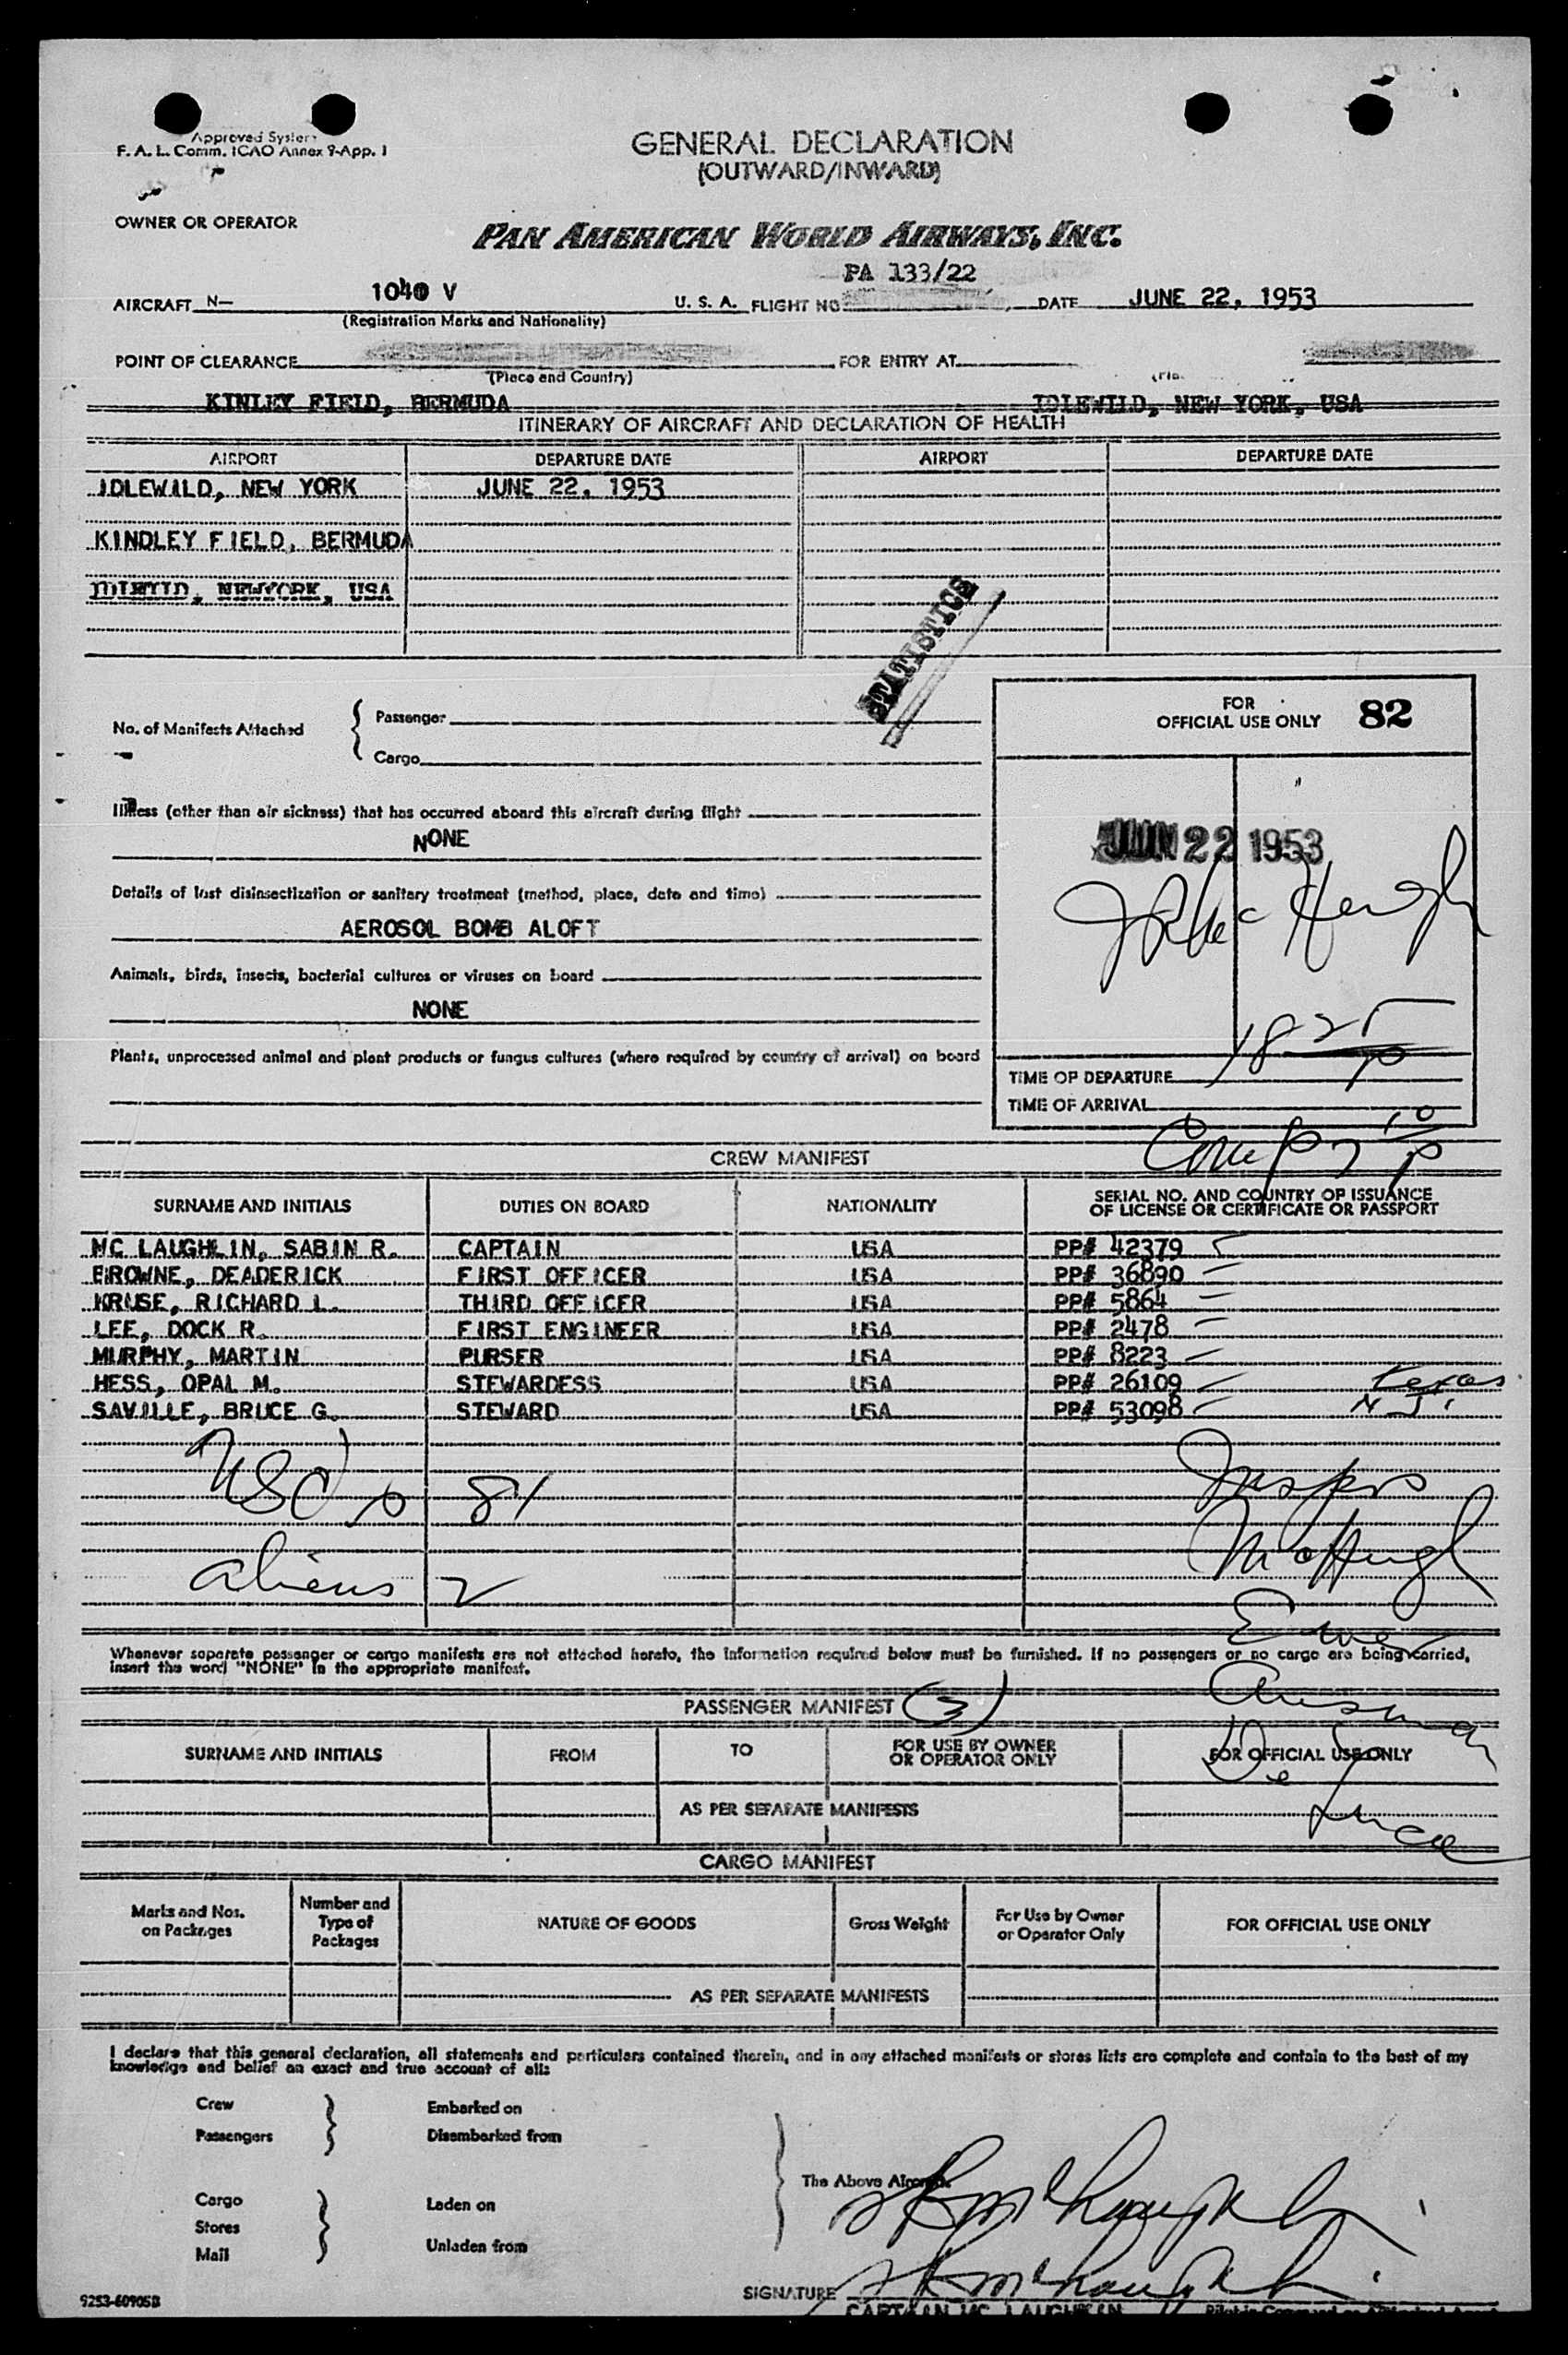 Approved System
F. A. L. Comm. ICAO Annex 9-App. 1
GENERAL DECLARATION
(OUTWARD/INWARD)
OWNER OR OPERATOR
PAN AMERICAN WORLD AIRWAYS, INC.
PA 133/22
AIRCRAFT N— 1040 V U. S. A. FLIGHT NO DATE JUNE 22, 1953
(Registration Marks and Nationality)
POINT OF CLEARANCE FOR ENTRY AT
(Place and Country)
KINLEY FIELD, BERMUDA IDLEWILD, NEW YORK, USA
ITINERARY OF AIRCRAFT AND DECLARATION OF HEALTH
AIRPORT DEPARTURE DATE AIRPORT DEPARTURE DATE
IDLEWILD, NEW YORK JUNE 22, 1953
KINDLEY FIELD, BERMUDA
NEWYORK, USA
STATISTICS
No. of Manifests Attached { Passenger
Cargo
FOR
OFFICIAL USE ONLY 82
Illness (other than air sickness) that has occurred aboard this aircraft during flight
NONE
JUN 22 1953
Details of last disinsectization or sanitary treatment (method, place, date and time)
AEROSOL BOMB ALOFT
Animals, birds, insects, bacterial cultures or viruses on board
NONE
Plants, unprocessed animal and plant products or fungus cultures (where required by country of arrival) on board
TIME OF DEPARTURE
TIME OF ARRIVAL
CREW MANIFEST
SURNAME AND INITIALS DUTIES ON BOARD NATIONALITY SERIAL NO. AND COUNTRY OF ISSUANCE
OF LICENSE OR CERTIFICATE OR PASSPORT
MC LAUGHLIN, SABIN R. CAPTAIN USA PP# 42379
BROWNE, DEADERICK FIRST OFFICER USA PP# 36890
KRUSE, RICHARD L. THIRD OFFICER USA PP# 5864
LEE, DOCK R. FIRST ENGINEER USA PP# 2478
MURPHY, MARTIN PURSER USA PP# 8223
HESS, OPAL M. STEWARDESS USA PP# 26109 Texas
SAVILLE, BRUCE G. STEWARD USA PP# 53098 N.J.
USC 81
Insprs
McHugh
aliens 2
Whenever separate passenger or cargo manifests are not attached hereto, the information required below must be furnished. If no passengers or no cargo are being carried,
insert the word "NONE" in the appropriate manifest.
PASSENGER MANIFEST (3)
SURNAME AND INITIALS FROM TO FOR USE BY OWNER
OR OPERATOR ONLY FOR OFFICIAL USE ONLY
De Luca
AS PER SEPARATE MANIFESTS
CARGO MANIFEST
Marks and Nos.
on Packages Number and
Type of
Packages NATURE OF GOODS Gross Weight For Use by Owner
or Operator Only FOR OFFICIAL USE ONLY
AS PER SEPARATE MANIFESTS
I declare that this general declaration, all statements and particulars contained therein, and in any attached manifests or stores lists are complete and contain to the best of my
knowledge and belief an exact and true account of all:
Crew Embarked on
Passengers Disembarked from
The Above Aircraft
Cargo Laden on
Stores
Mail Unladen from
SIGNATURE
CAPTAIN MC LAUGHLIN
9253-60905B